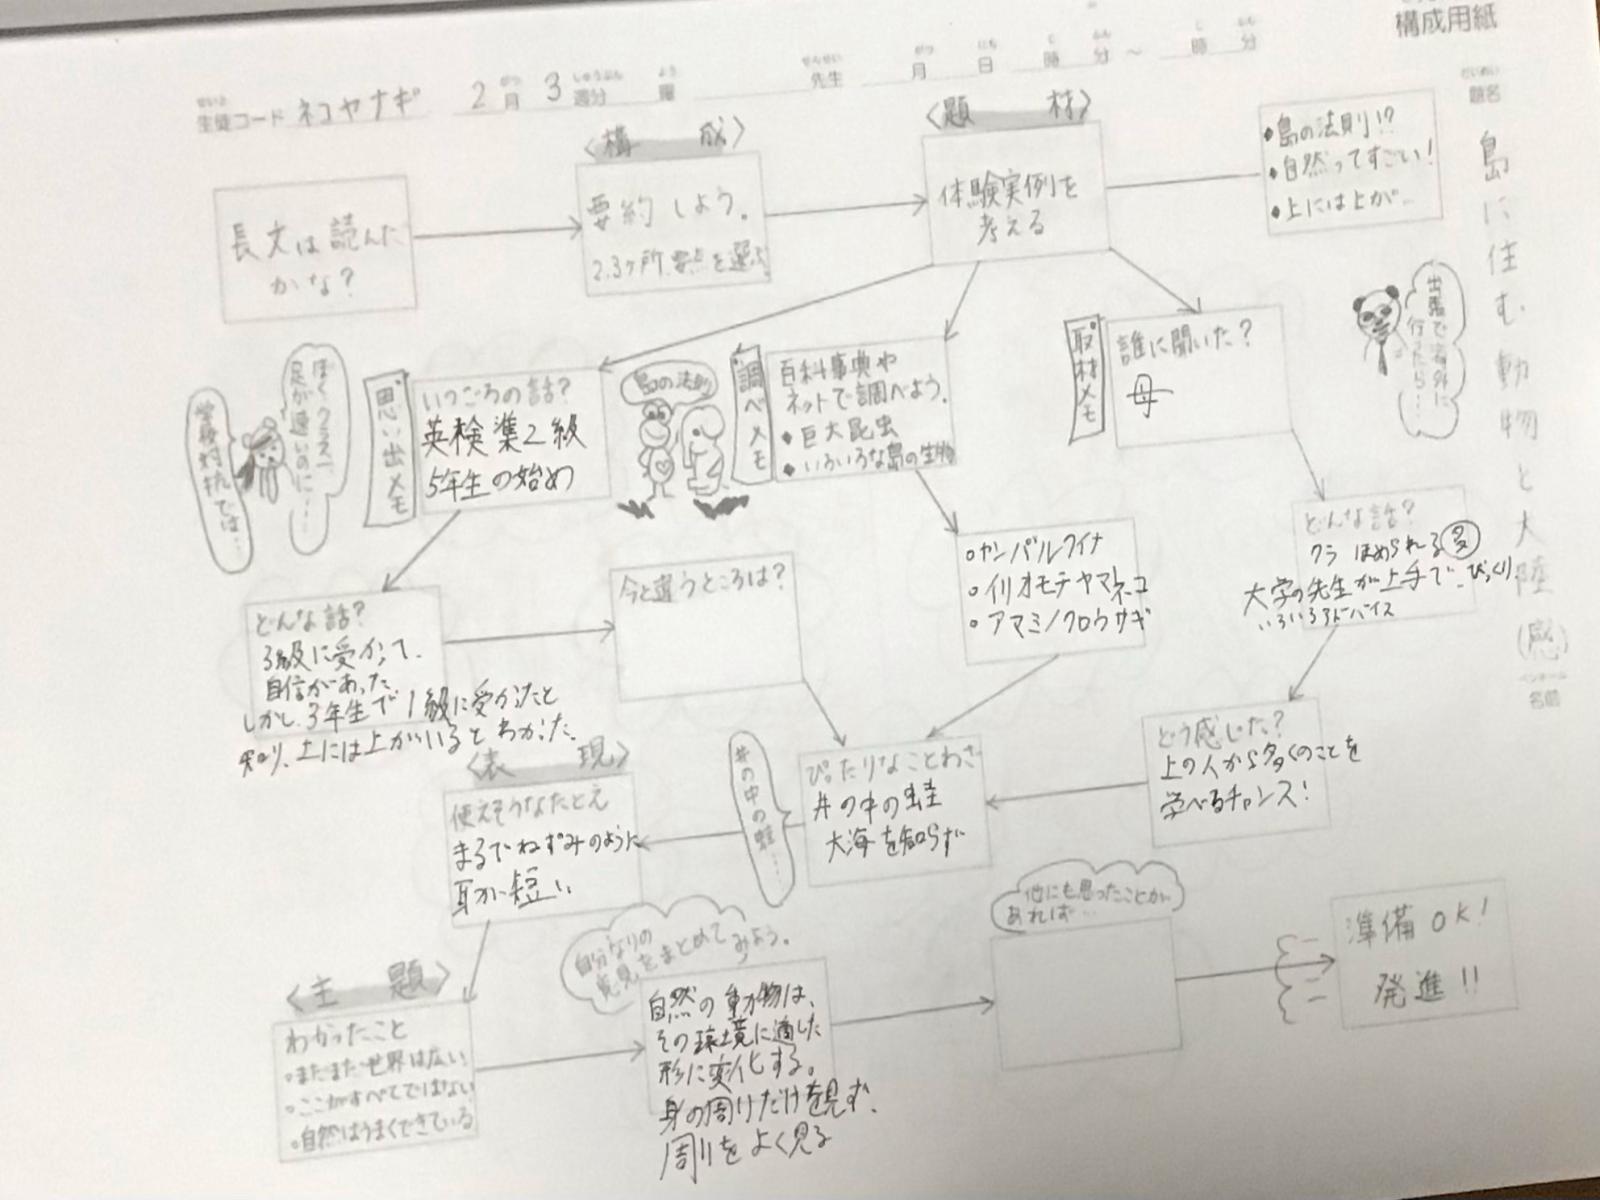 構成用紙
生徒コード ネコヤナギ 2月 3週分 曜 先生 月 日 時 分 ～ 時 分
題名
島に住む動物と大陸(感)
ペンネーム
名前
長文は読んだ
かな?
〈構 成〉
要約しよう。
2.3ヶ所要点を選ぶ
〈題 材〉
体験実例を
考える
・島の法則!?
・自然ってすごい!
・上には上が…
ぼくクラス一
足が速いのに……
学校対抗では…
思い出メモ
いつごろの話?
英検準2級
5年生の始め
島の法則
調べメモ
百科事典や
ネットで調べよう。
・巨大昆虫
・いろいろな島の生物
取材メモ
誰に聞いた?
母
出張で海外に
行ったら…
どんな話?
3級に受かって、
自信があった
しかし、3年生で1級に受かったと
知り、上には上がいるとわかった。
今と違うところは?
・ヤンバルクイナ
・イリオモテヤマネコ
・アマミノクロウサギ
どんな話?
クラ ほめられる 多
大学の先生が上手で…びっくり
いろいろアドバイス
どう感じた?
上の人から多くのことを
学べるチャンス!
ぴったりなことわざ
井の中の蛙
大海を知らず
井の中の蛙……
〈表 現〉
使えそうなたとえ
まるでねずみのように
耳が短い
〈主 題〉
わかったこと
・まだまだ世界は広い
・ここがすべてではない
・自然はうまくできている
自分なりの
意見をまとめて
みよう。
自然の動物は、
その環境に適した
形に変化する。
身の周りだけを見ず、
周りをよく見る
他にも思ったことが
あれば…
準備OK!
発進!!